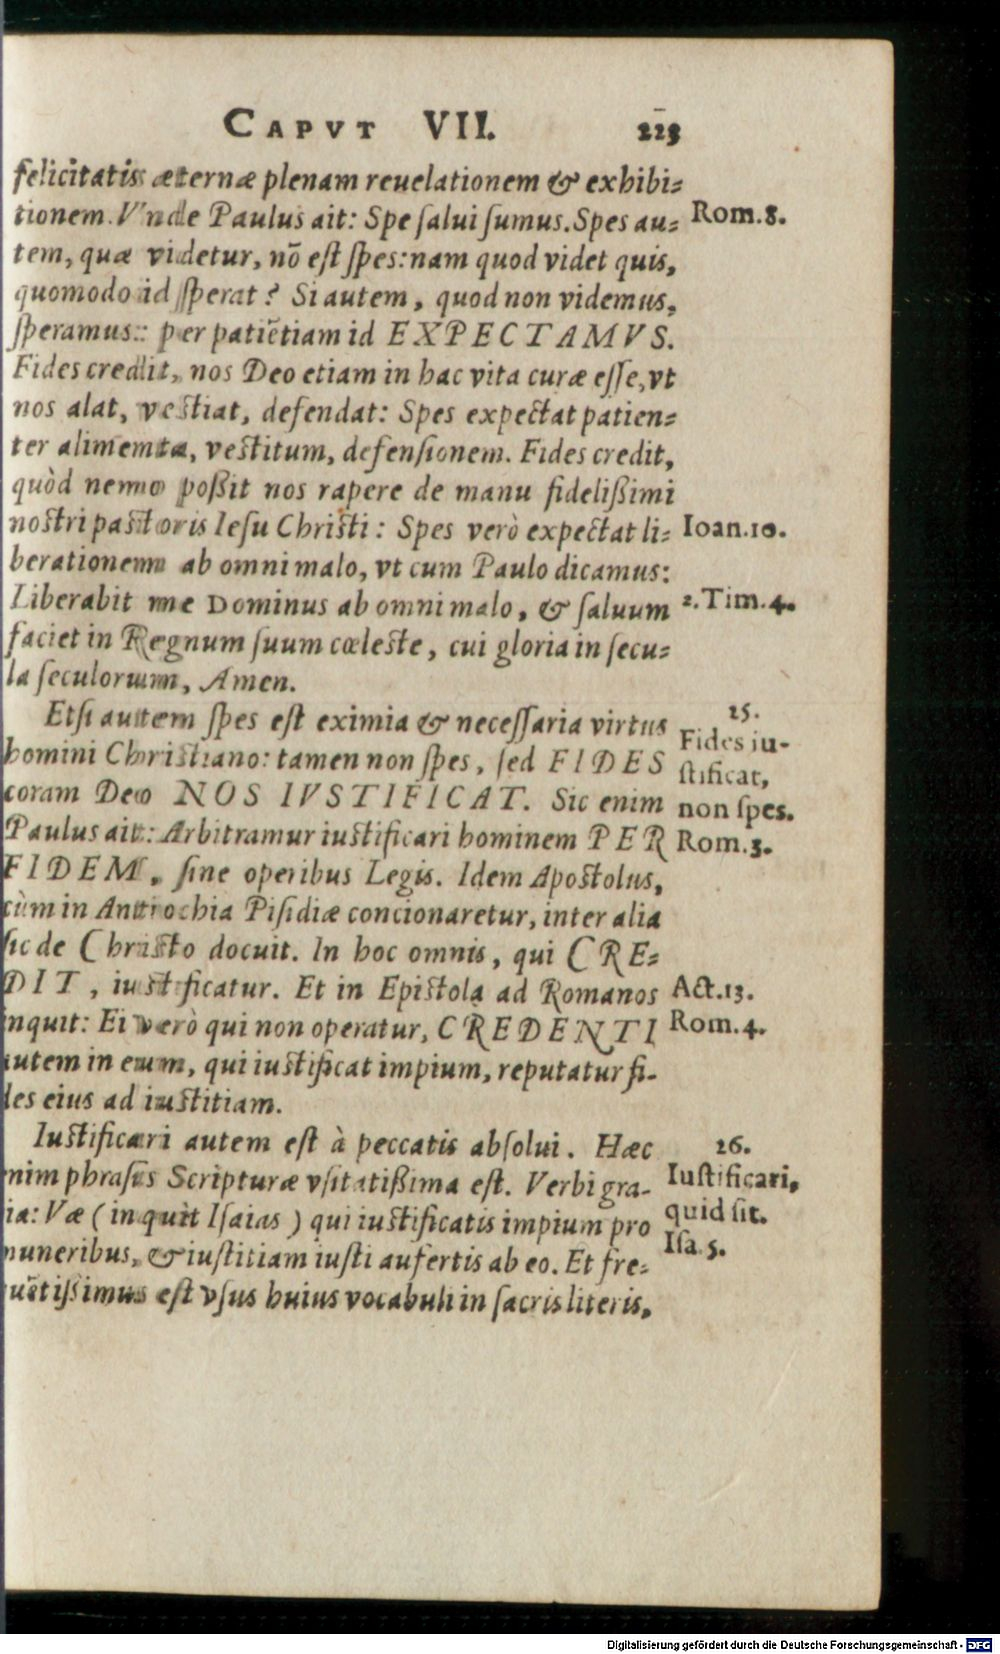 CAPVT VII. 223
felicitatis æternæ plenam reuelationem & exhibi-
tionem. Vnde Paulus ait: Spe ſalui ſumus. Spes au- Rom.8.
tem, quæ videtur, nō eſt ſpes: nam quod videt quis,
quomodo id ſperat? Si autem, quod non videmus,
ſperamus: per patiētiam id EXPECTAMVS.
Fides credit, nos Deo etiam in hac vita curæ eſſe, vt
nos alat, veſtiat, defendat: Spes expectat patien-
ter alimenta, veſtitum, defenſionem. Fides credit,
quòd nemo poßit nos rapere de manu fidelißimi
noſtri paſtoris Ieſu Chriſti: Spes verò expectat li- Ioan.10.
berationem ab omni malo, vt cum Paulo dicamus:
Liberabit me Dominus ab omni malo, & ſaluum 2.Tim.4.
faciet in Regnum ſuum cœleſte, cui gloria in ſecu-
la ſeculorum, Amen.
Etſi autem ſpes eſt eximia & neceſſaria virtus 25.
homini Chriſtiano: tamen non ſpes, ſed FIDES Fides iu-
ſtificat,
coram Deo NOS IVSTIFICAT. Sic enim non ſpes.
Paulus ait: Arbitramur iuſtificari hominem PER Rom.3.
FIDEM, ſine operibus Legis. Idem Apoſtolus,
cùm in Antiochia Piſidiæ concionaretur, inter alia
ſic de Chriſto docuit. In hoc omnis, qui CRE-
DIT, iuſtificatur. Et in Epiſtola ad Romanos Act.13.
inquit: Ei verò qui non operatur, CREDENTI Rom.4.
autem in eum, qui iuſtificat impium, reputatur fi-
des eius ad iuſtitiam.
Iuſtificari autem eſt à peccatis abſolui. Hæc 26.
nim phraſis Scripturæ vſitatißima eſt. Verbi gra- Iuſtificari,
ia: Væ (inquit Iſaias) qui iuſtificatis impium pro quid ſit.
muneribus, & iuſtitiam iuſti aufertis ab eo. Et fre- Iſa.5.
uētißimus eſt vſus huius vocabuli in ſacris literis,
Digitalisierung gefördert durch die Deutsche Forschungsgemeinschaft - DFG